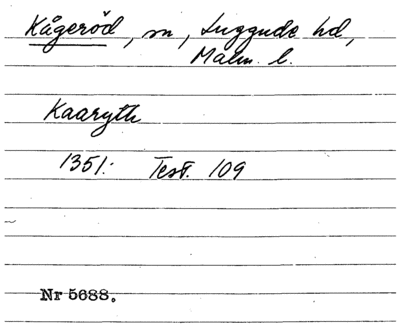 Kågeröd, sn, Luggude hd,
Malm. l.
Kaaryth
1351: Test. 109
Nr 5688.